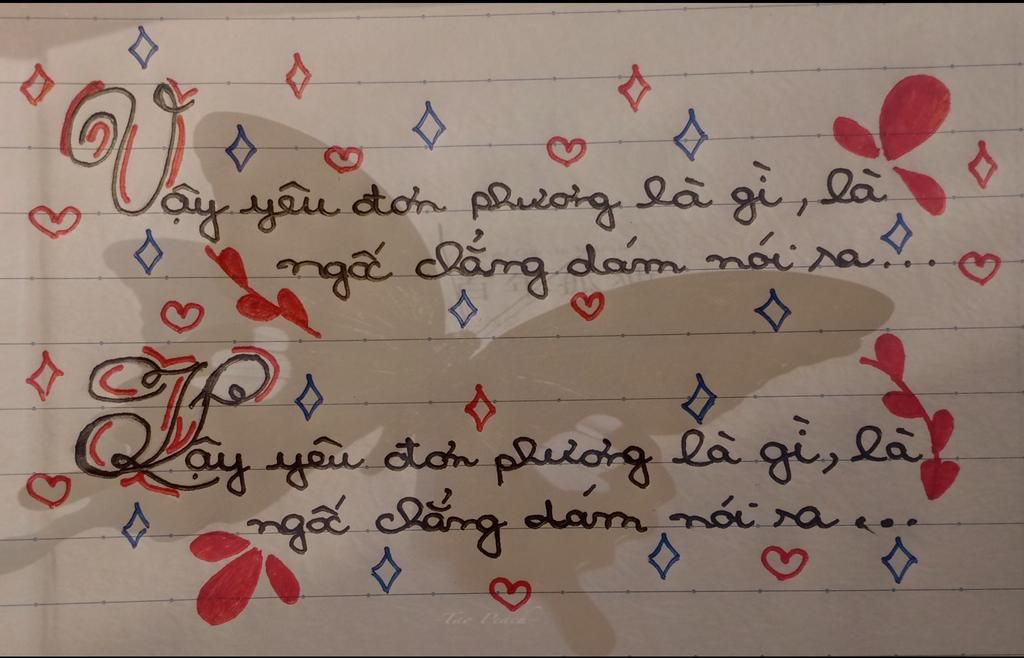 Vậy yêu đơn phương là gì, là
ngốc chẳng dám nói ra...
Vậy yêu đơn phương là gì, là
ngốc chẳng dám nói ra...